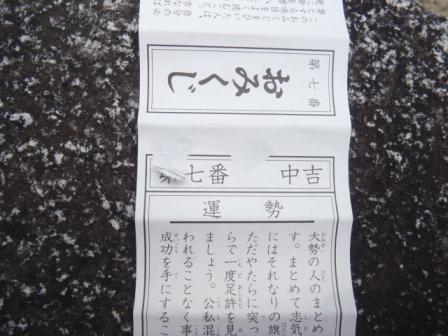 おみくじ
第七番
このおみくじをひいた人は
第七番 中吉
運勢
大勢の人のまとめ
す。まとめて志気
にはそれなりの旗
ただやたらに突っ
らで一度足許を見
ましょう。公私混
われることなく事
成功を手にするこ